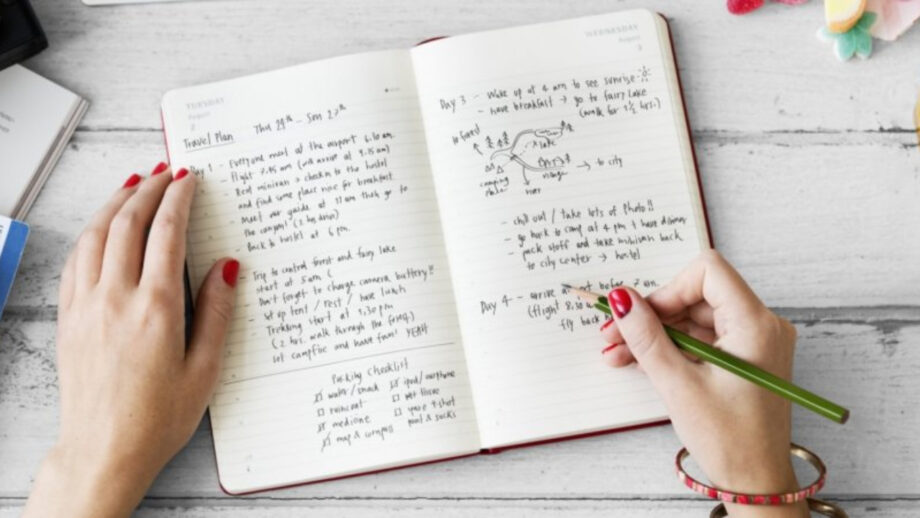 TUESDAY
August
2
Travel Plan Thu 24th - Sun 27th
Day 1 - Everyone meet at the airport 6.10 am.
- Flight 7.45 am (will arrive at 9.15 am)
- Rent minivan → checkin to the hostel
and find some place nice for breakfast
- Meet our guide at 11 am then go to
the canyon! (2 hrs drive)
- Back to hostel at 6 pm.
- Trip to central forest and fairy lake
start at 5 am
- Don't forget to charge camera battery!!
- Set up tent / rest / have lunch
- Trekking start at 3.30 pm
(2 hrs. walk through the forest)
- set campfire and have fun! YEAH
Packing Checklist
water / snack
raincoat
medicine
map & compass
ipod / earphone
wet tissue
t-shirt
pant & socks
WEDNESDAY
August
3
Day 3 - Wake up at 4 am to see sunrise
- have breakfast → go to fairy lake
(walk for 1 1/2 hrs.)
to forest
lake
→ to city
camping place
river
- chill out / take lots of photo!!
- go back to camp at 4 pm & have dinner
- pack stuff and take minivan back
to city center → hostel
Day 4 - arrive before 7 am.
(flight 8.30 am
fly back